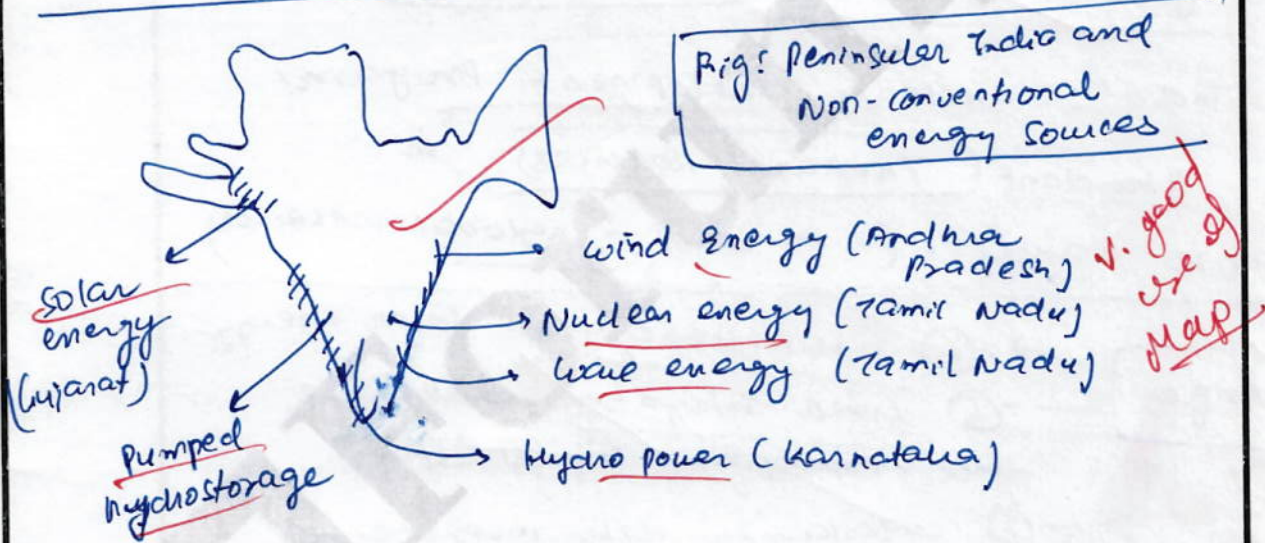 Fig: Peninsuler India and
Non-conventional
energy sources
v. good
use of
Map
wind Energy (Andhra
Pradesh)
Nuclear energy (Tamil Nadu)
wave energy (Tamil Nadu)
Hydro power (Karnataka)
solar
energy
(Gujarat)
pumped
hydrostorage